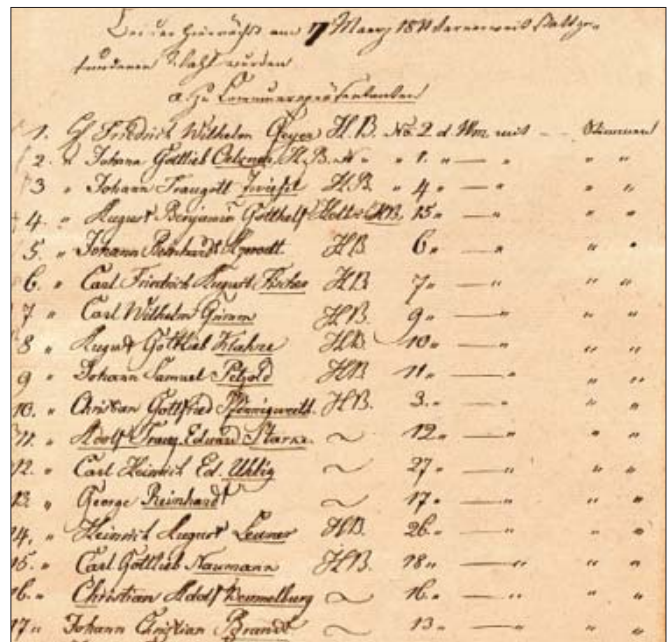 Bei der hiernächst am 7 Maerz 18
fundenen Wahl wurden
a. zu Communrepräsentanten
1. H Friedrich Wilhelm Geyer H.B. No. 2 d Wm. mit — Stimmen
2. " Johann Gottlieb H.B. " " 1. " — " " "
3 " Johann Traugott H.B. " 4 " — " " "
4. " August Benjamin Gotthelf HB. 15 " — " " "
5. " Johann HB 6 " — " " "
6. " Carl Friedrich August Fischer HB 7 " — " " "
7 " Carl Wilhelm Grimm HB. 9 " — " " "
8 " August Gottlieb Klahre HB 10 " — " " "
9 " Johann Samuel Petzold HB 11 " — " " "
10. " Christian Gottfried Pfennigwerth HB. 3. " — " " "
11. " Adolf Franz Eduard Starke ~ 12 " — " " "
12. " Carl Heinrich Ed. Uhlig ~ 27 " — " " "
13. " George Reinhardt ~ 17 " — " " "
14. " Heinrich August Leuner HB. 26. " — " " "
15. " Carl Gottlieb Naumann HB. 18 " — " " "
16. " Christian Adolf ~ 16. " — " " "
17 " Johann Christian Brandt ~ 13 " — " " "